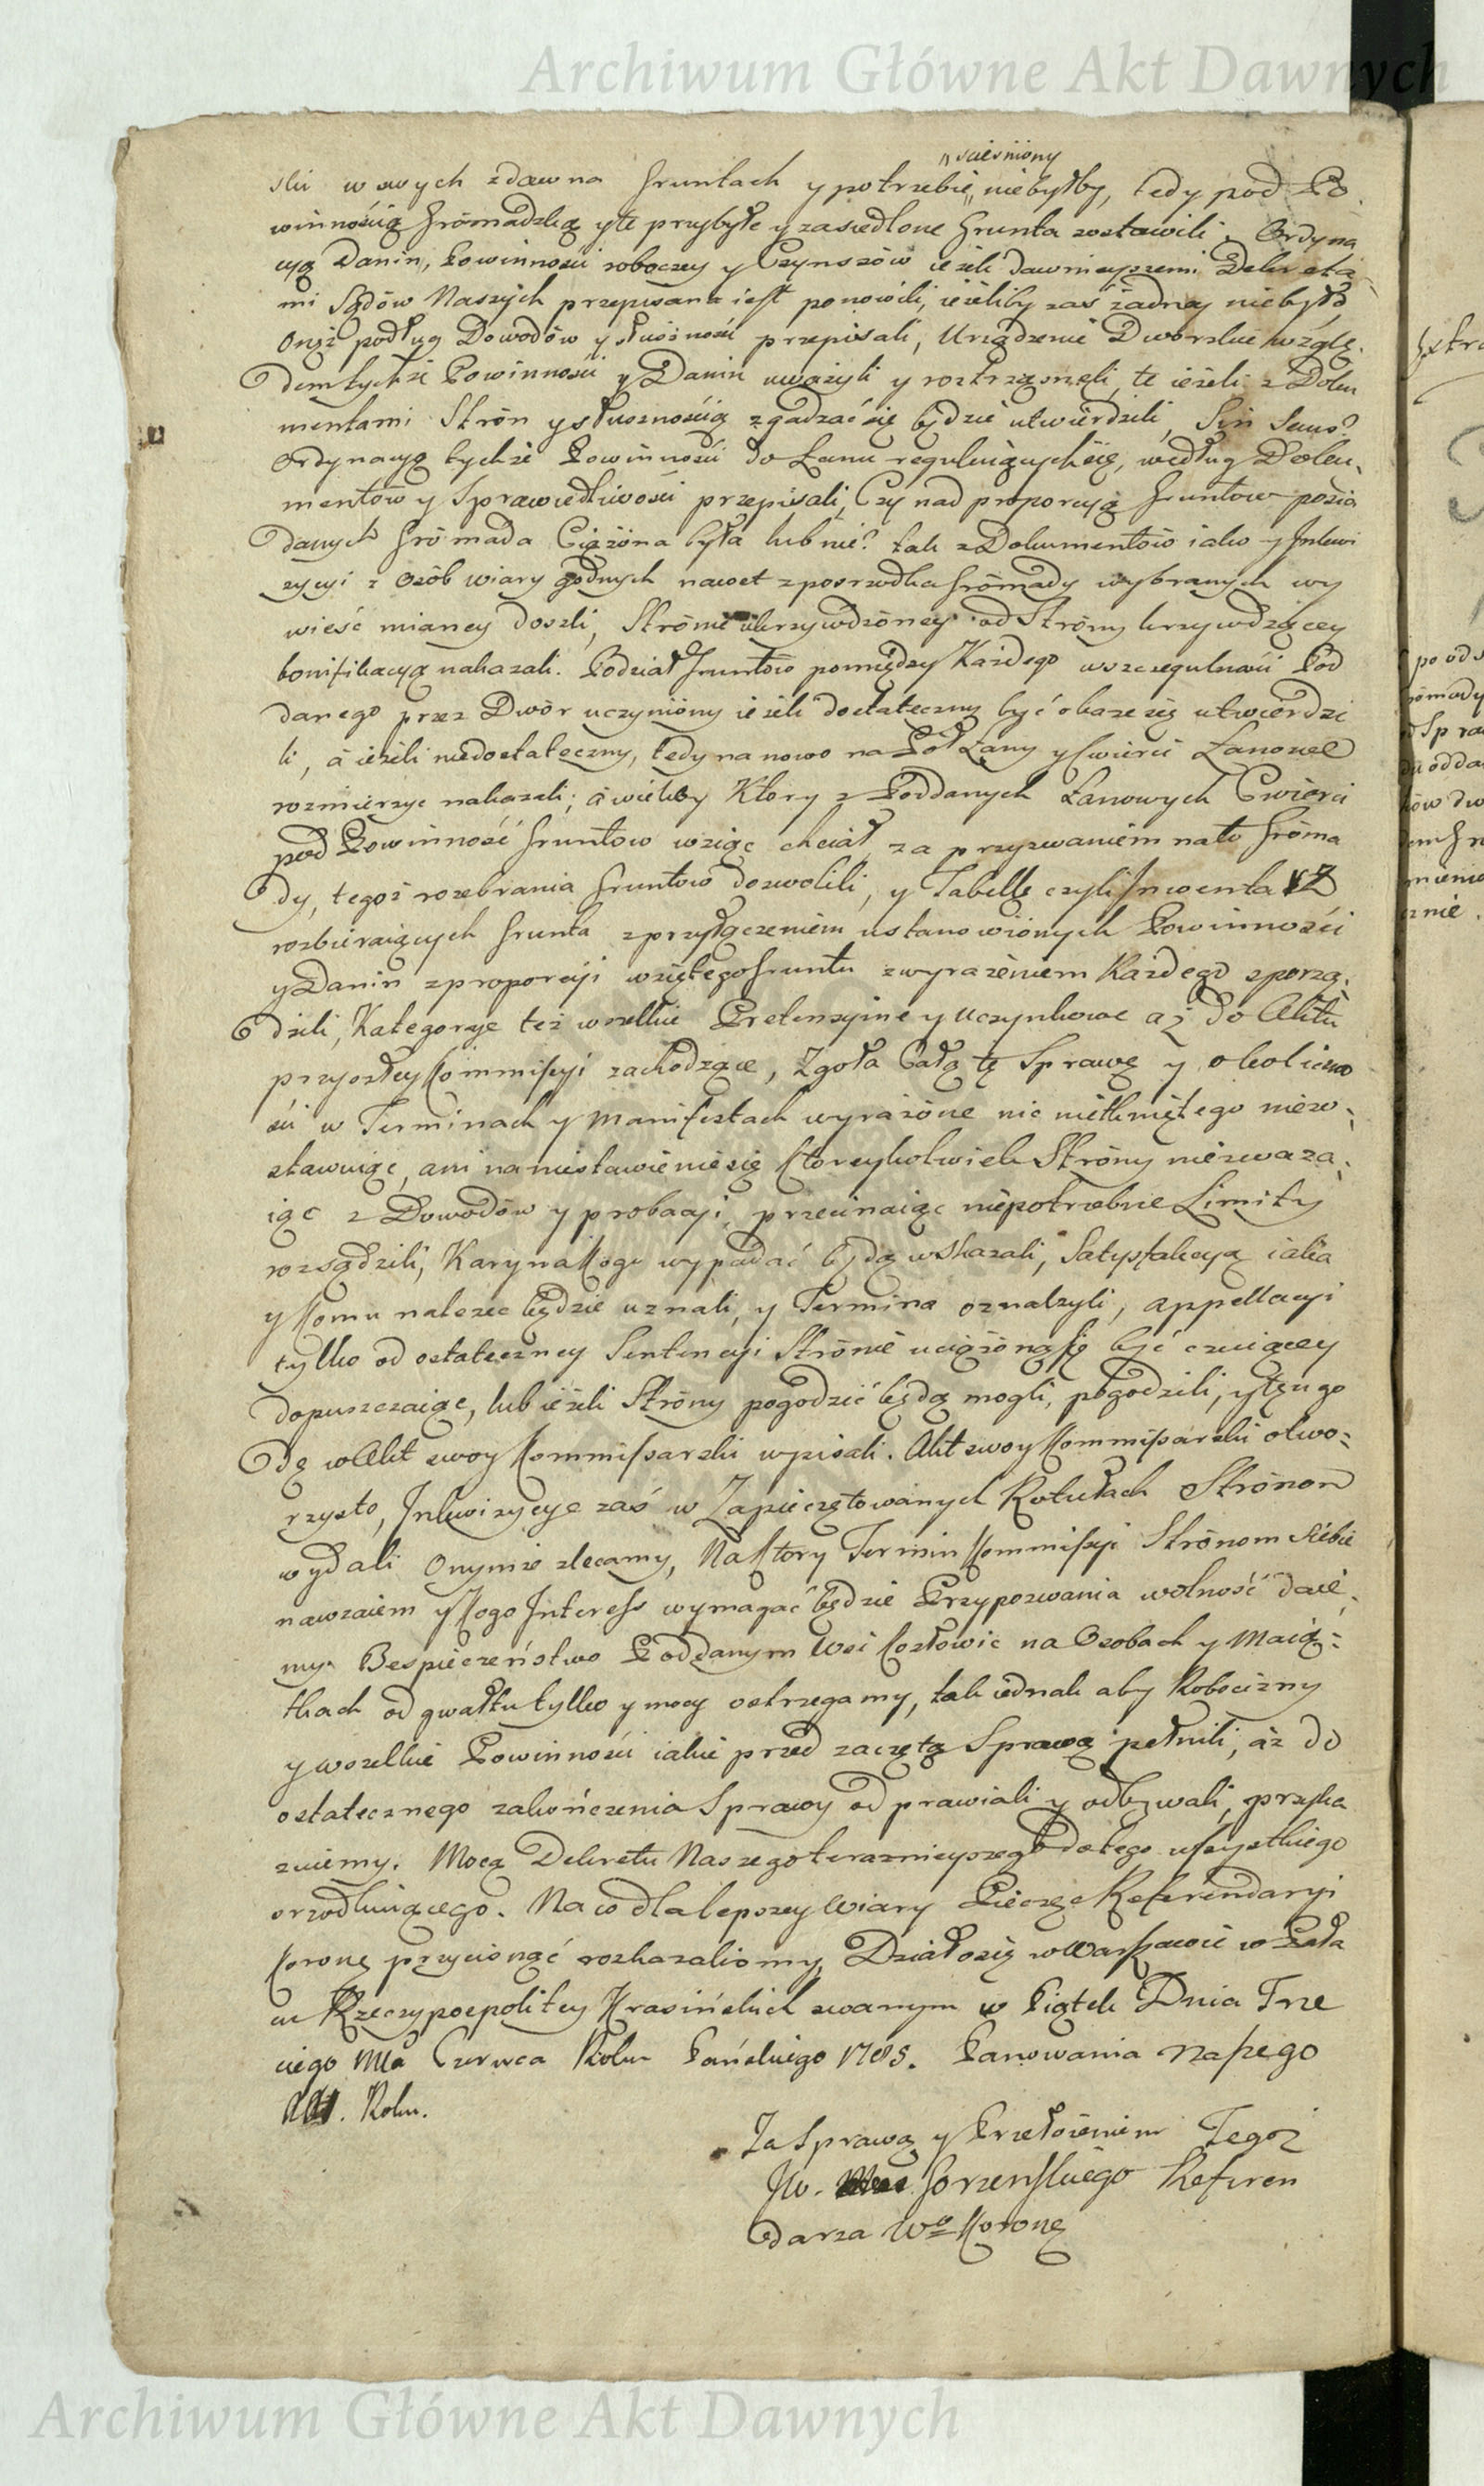 Archiwum Główne Akt Dawnych
scieśniony
w swych zdawna Gruntach y potrzebie niebyłby, tedy pod Po
winnością Gromadzką y te przybyłe y zasiedlone Grunta zostawili. Ordyna
cyą Danin, Powinności roboczey y Czynszów ieżeli dawnieyszemi Dekreta
mi Sądów Naszych przepisana iest ponowili, ieżeliby zaś żadney niebyło
Onęż podług Dowodów y słuszności przepisali, Urządzenie Dworskie wzglę
dem tychże Powinności y Danin uważyli y roztrząsnęli, te ieżeli z Doku
mentami Stron y słusznością zgadzać się będzie utwierdzili, Sin secus
Ordynacyą tychże Powinności do Łanu reguluiących się, według Doku-
mentów y Sprawiedliwości przepisali, Czy nad proporcyą Gruntów posia
danych Gromada Ciążona była lub nie? tak z Dokumentów iako y Inkwi
zycyi z Osób wiary godnych nawet z posrzodka Gromady wybranych wy
wieść mianey doszli, Stronie ukrzywdzoney od Strony krzywdzącey
bonifikacyą nakazali. Podział Gruntów pomiędzy Każdego wszczegulności Pod
danego przez Dwór uczyniony ieżeli dostateczny być okaze się utwierdzi
li, á ieżeli niedostateczny, tedy na nowo na Pół Łany y Cwierci Łanowe
rozmierzyc nakazali; á wieleby Ktory z Poddanych Łanowych Cwierci
pod Powinność Gruntów wziąc chciał za przyzwaniem na to Groma
dy, tegoż rozebrania Gruntów dozwolili, y Tabelle czyli Inwentarz
rozbieraiących Grunta z przyłączeniem ustanowionych Powinności
y Danin z proporcyi wziętego Gruntu z wyrażeniem Każdego sporzą-
dzili, Kategorye też wszelkie Pretensyine y Uczynkowe aż do Aktu
przyszłey Kommissyi zachodzące, Zgoła Całą tę Sprawę y okoliczno
ści w Terminach y Manifestach wyrażone nic nietkniętego niezo-
stawuiąc, ani na niestawienie się Ktoreykolwiek Strony niezwaza-
iąc z Dowodów y probacyi, przecinaiąc niepotrzebne Limity
rozsądzili, Kary na Kogo wypadać będą wskazali, Satysfakcyą iaka
y Komu nalezec będzie uznali, y Termina oznaczyli, appellacyi
tylko od ostateczney Sentencyi Stronie uciążoną się być czuiącey
dopuszczaiąc, lub ieżeli Strony pogodzić będą mogli, pogodzili, y tę ugo
dę w Akt swoy Kommissarski wpisali. Akt swoy Kommissarski otwo-
rzysto, Inkwizycye zaś w Zapieczętowanych Rotułach Stronom
wydali Onymże zlecamy, Na Ktory Termin Kommissyi Stronom Siebie
nawzaiem y Kogo Interess wymagać będzie Przypozwania wolność daie-
my. Bespieczeństwo Poddanym Wsi Kozłowic na Osobach y Maią-
tkach od gwałtu tylko y mocy ostrzegamy, tak iednak aby Robocizny
y wszelkie Powinności iakie przed zaczętą Sprawą pełnili, aż do
ostatecznego zakończenia Sprawy odprawiali y odbywali, przyka
zuiemy. Mocą Dekretu Naszego teraznieyszego do tego wszystkiego
srzodkuiącego. Na co dla lepszey Wiary Pieczęć Referendaryi
Koronę przycisnąć rozkazalismy, Działo się w Warszawie w Pała
cu Rzeczypospolitey Krasińskich zwanym w Piątek Dnia Trze
ciego Mca Czerwca Roku Pańskiego 1785. Panowania Naszego
Roku.
Za Sprawą y Przełożeniem Tegoż
JW. Gorzenskiego Referen
darza Wo Koronę
Archiwum Główne Akt Dawnych